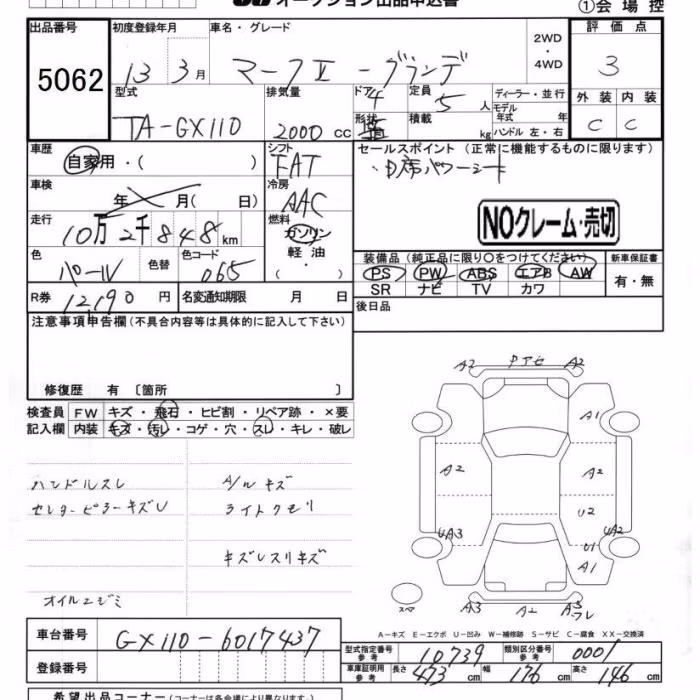 オークション出品申込書
①会場控
出品番号 初度登録年月 車名・グレード 2WD・4WD 評価点
5062 13 3月 マークⅡ - グランデ 3
型式 排気量 ドア 4 定員 5人 ディーラー・並行 外装 内装
TA-GX110 2000cc 形状 積載 kg モデル年式 年 ハンドル 左・右 C C
車歴 自家用・( ) シフト FAT セールスポイント (正常に機能するものに限ります)
車検 年 月( 日) 冷房 AAC
走行 10万2千848km 燃料 ガソリン 軽油・( ) NOクレーム・売切
色 パール 色替 色コード 065 装備品 (純正品に限り○をつけてください) 新車保証書
PS PW ABS エアB AW 有・無
SR ナビ TV カワ
R券 12,190円 名変通知期限 月 日
後日品
注意事項申告欄(不具合内容等は具体的に記入して下さい)
修復歴 有 〔箇所 〕
検査員 FW キズ・飛石・ヒビ割・リペア跡・×要
記入欄 内装 キズ・汚レ・コゲ・穴・スレ・キレ・破レ
ハンドルスレ A/Wキズ
ライトクモリ
キズレスリキズ
オイルニジミ
A2 A2
A1
A2 A2
U2
UA3 UA2
U1
A1
スペア A3 A2
A-キズ E-エクボ U-凹み W-補修跡 S-サビ C-腐食 XX-交換済
車台番号 GX110-6017437
型式指定番号 参考 10739 類別区分番号 参考 0001
登録番号 車庫証明用 参考 長さ 473cm 幅 176cm 高さ 146cm
希望出品コーナー (コーナーは各会場により異なります。)